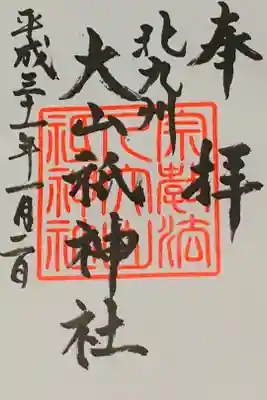 奉拝
北九州
大山祇神社
宗教法
人大山
祇神社
平成三十一年一月二日